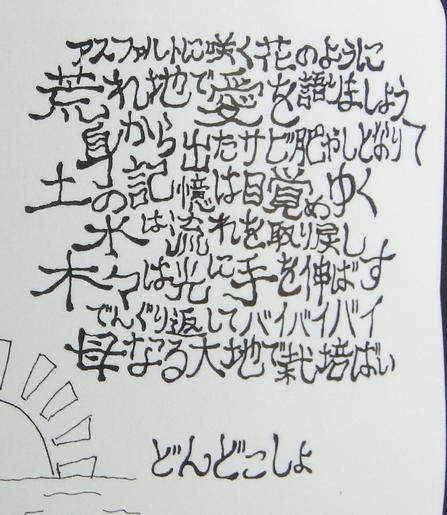 アスファルトに咲く花のように
荒れ地で愛を語りましょう
身から出たサビ肥やしとなりて
土の記憶は目覚めゆく
水は流れを取り戻し
木々は光に手を伸ばす
でんぐり返してバイバイバイ
母なる大地で栽培ばい
どんどこしょ